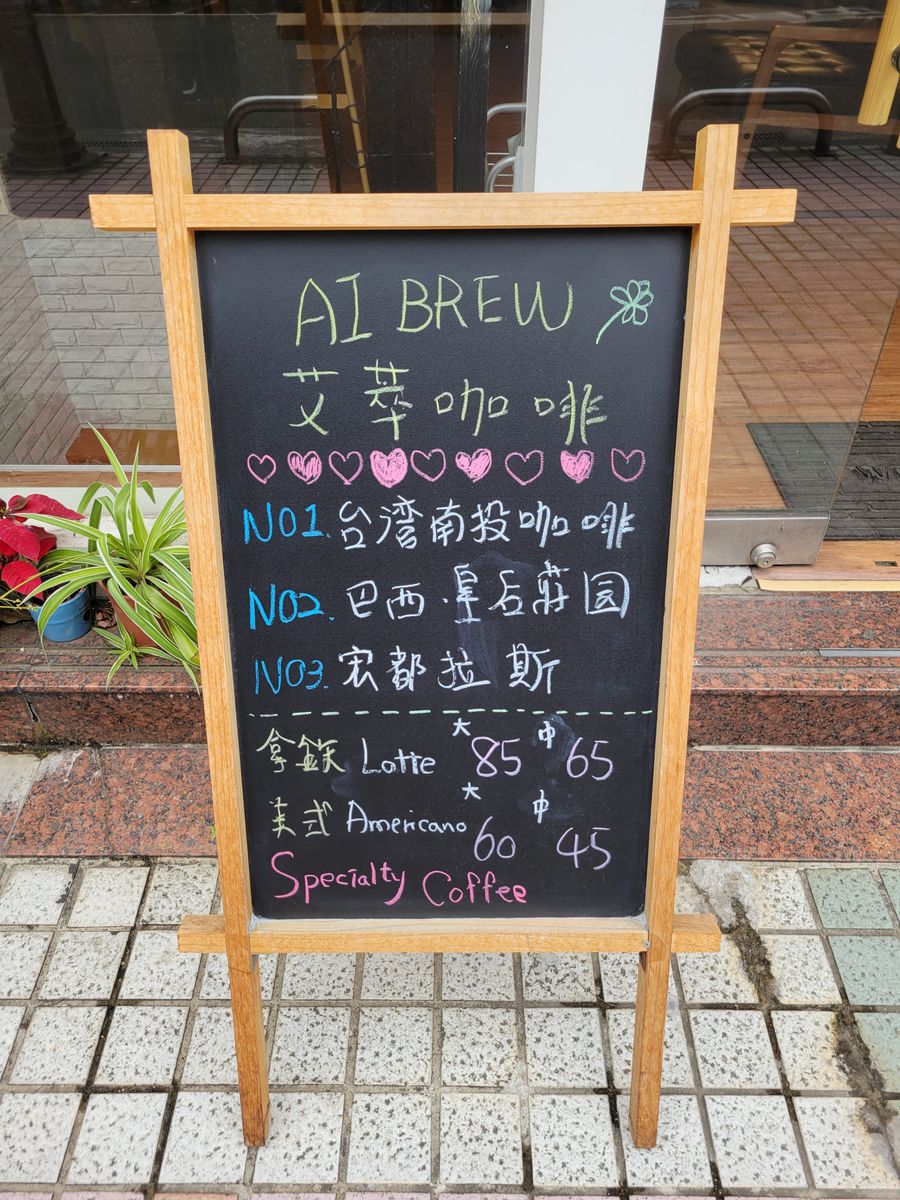 AI BREW
艾萃咖啡
NO1. 台湾南投咖啡
NO2. 巴西.皇后莊园
NO3. 宏都拉斯
拿鐵 Latte 大 85 中 65
美式 Americano 大 60 中 45
Specialty Coffee